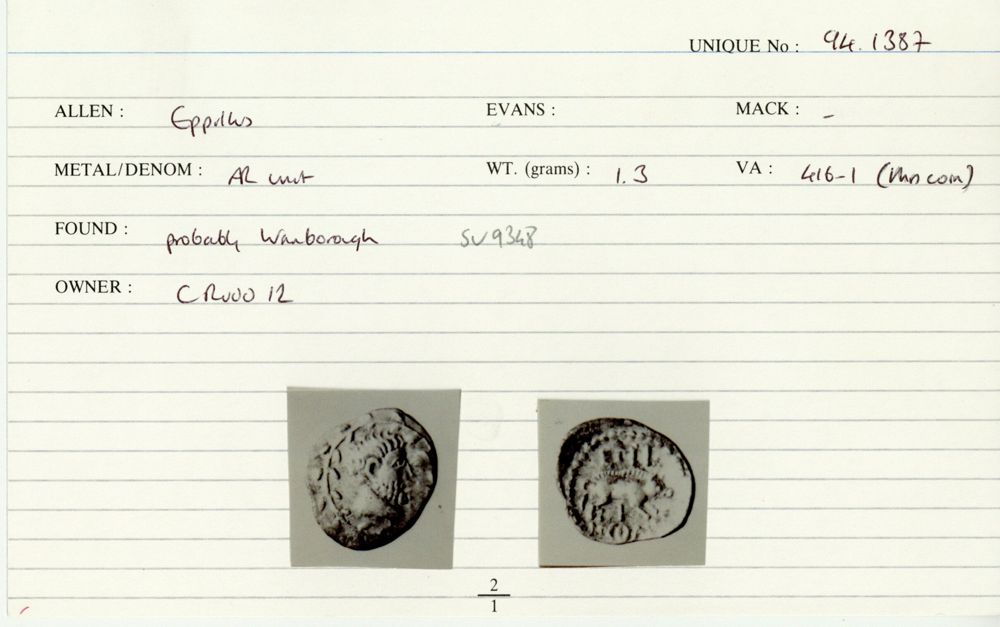 UNIQUE No : 94.1387
ALLEN : Eppillus EVANS : MACK : -
METAL/DENOM : AR unit WT. (grams) : 1.3 VA : 416-1 (this coin)
FOUND : probably Wanborough SU9348
OWNER : C Rudd 12
2
1